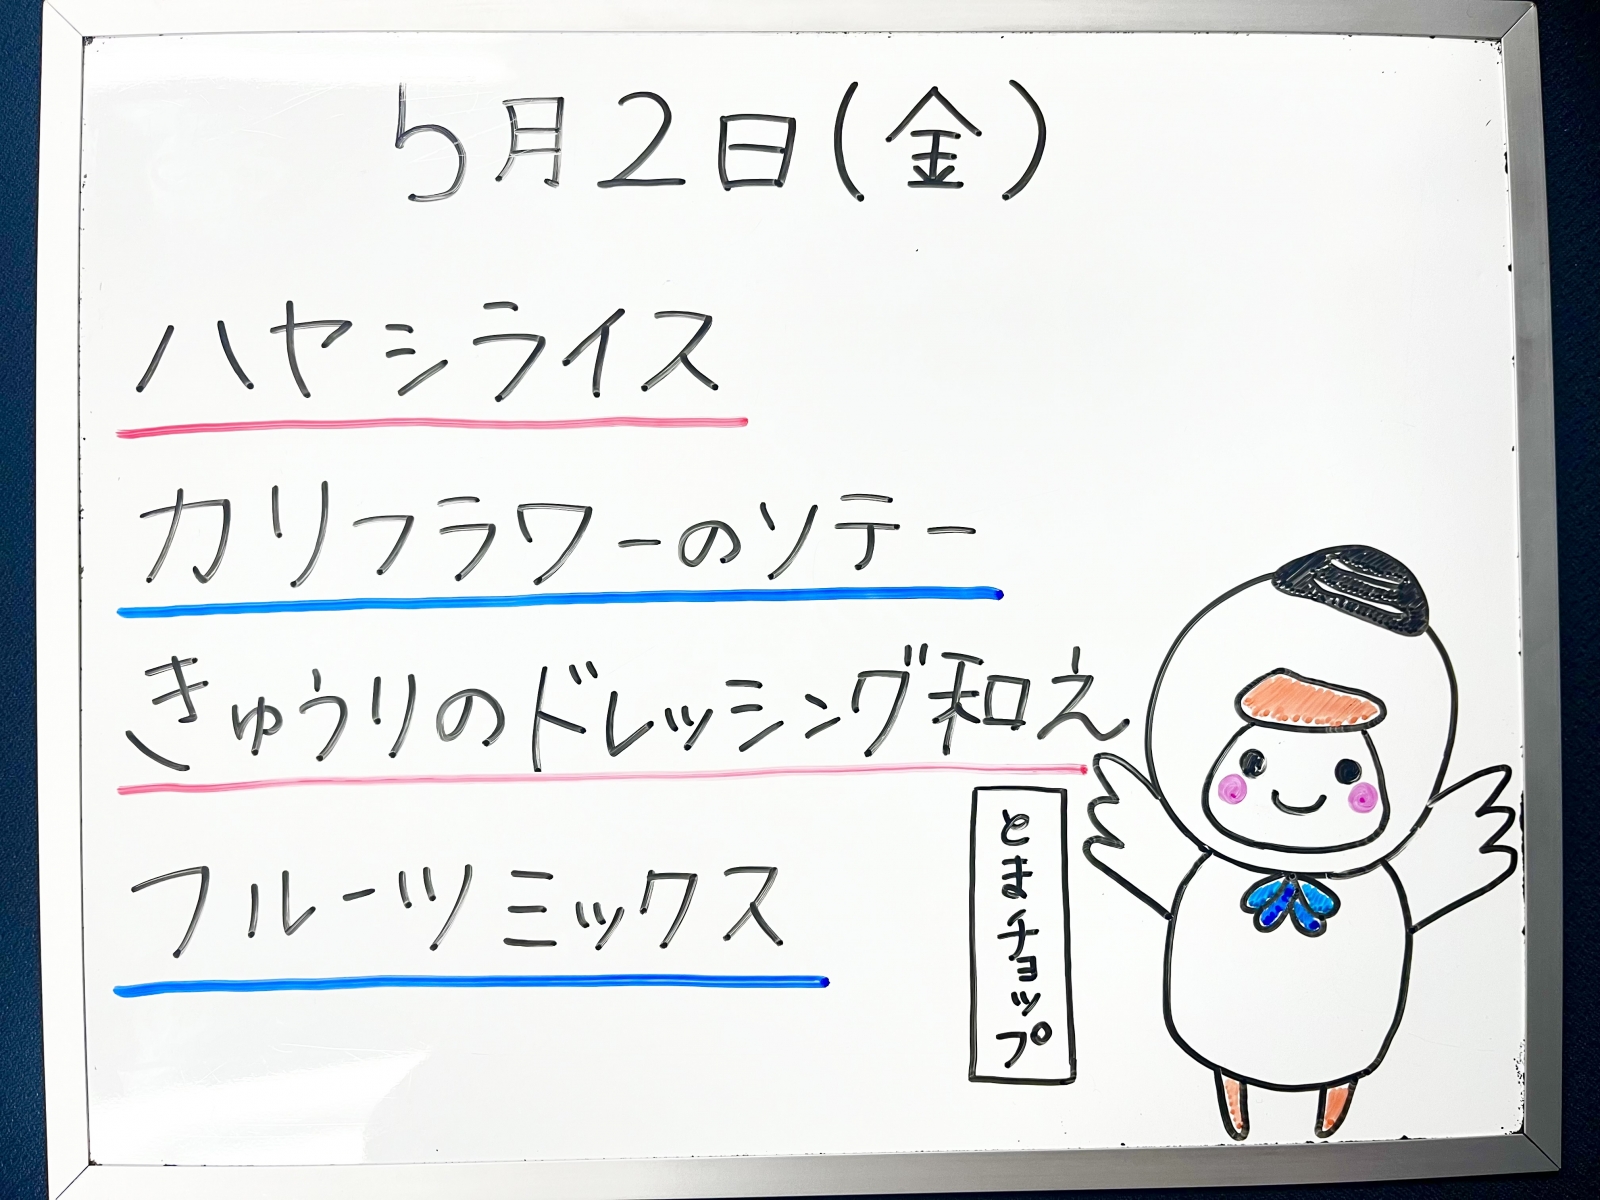 5月2日(金)
ハヤシライス
カリフラワーのソテー
きゅうりのドレッシング和え
フルーツミックス
とまチョップ